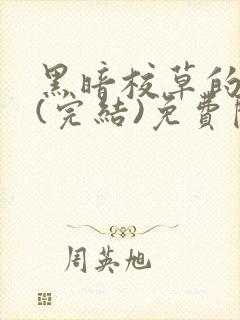 黑暗校草的
(完結)免費
周英旭